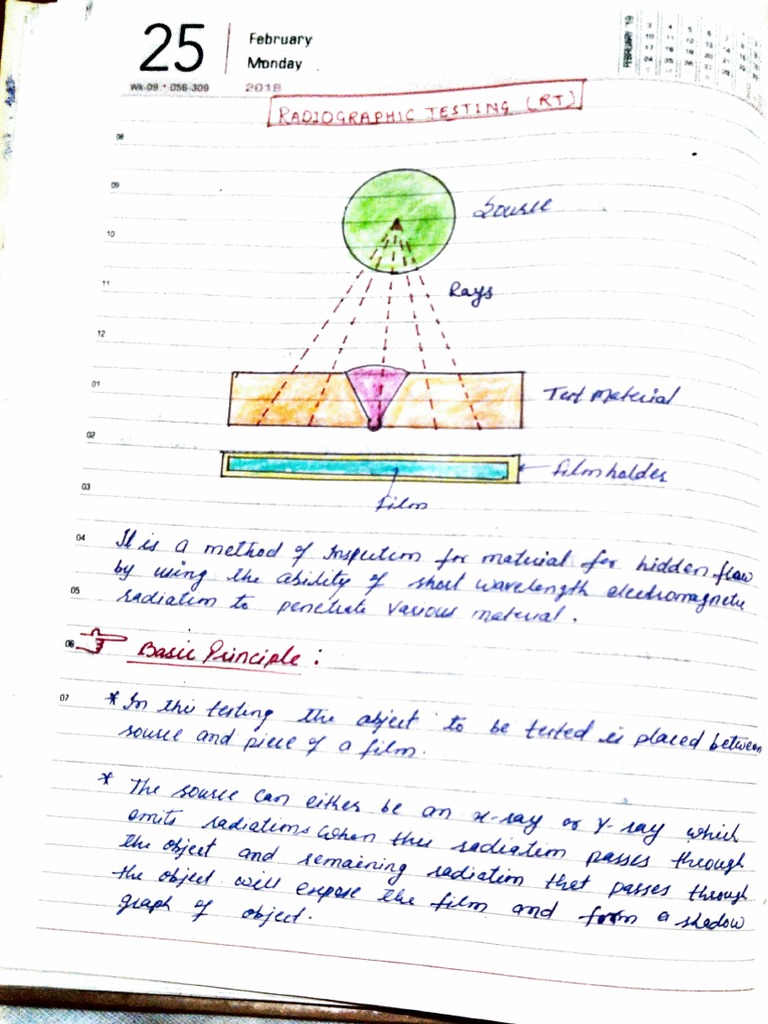 25
February
Monday
Wk-09 • 056-309
2019
RADIOGRAPHIC TESTING (RT)
08
09
Source
10
11
Rays
12
01
Test Material
02
film holder
03
film
04
It is a method of Inspection for material for hidden flaw
by using the ability of short wavelength electromagnetic
05
radiation to penetrate various material.
06
Basic Principle :
07
* In this testing the object to be tested is placed between
source and piece of a film.
* The source can either be an x-ray or γ-ray which
emits radiations when this radiation passes through
the object and remaining radiation that passes through
the object will expose the film and form a shadow
graph of object.